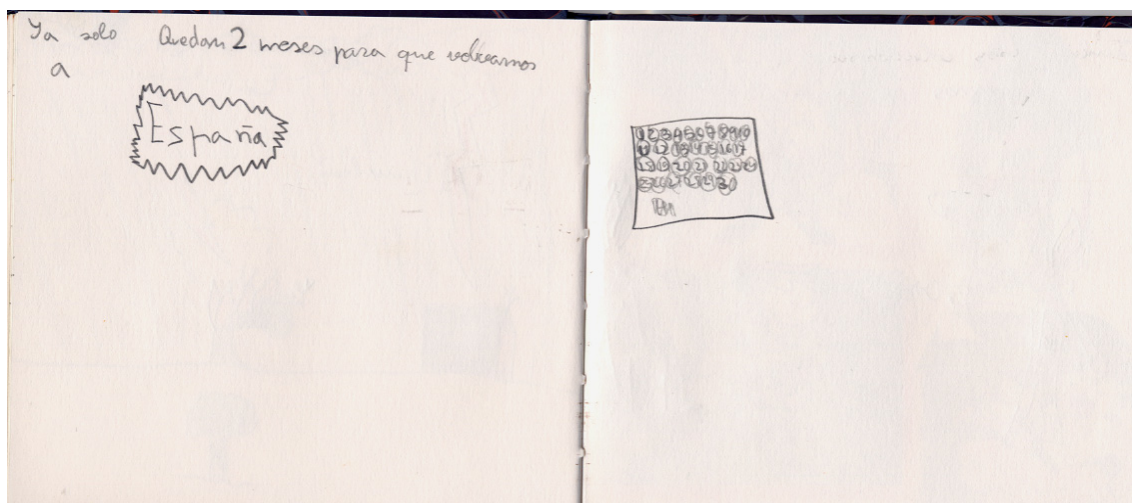 Ya solo Quedan 2 meses para que volvamos
a
España
1 2 3 4 5 6 7 8 9 10
11 12 13 14 15 16 17
18 19 20 21 22 23 24